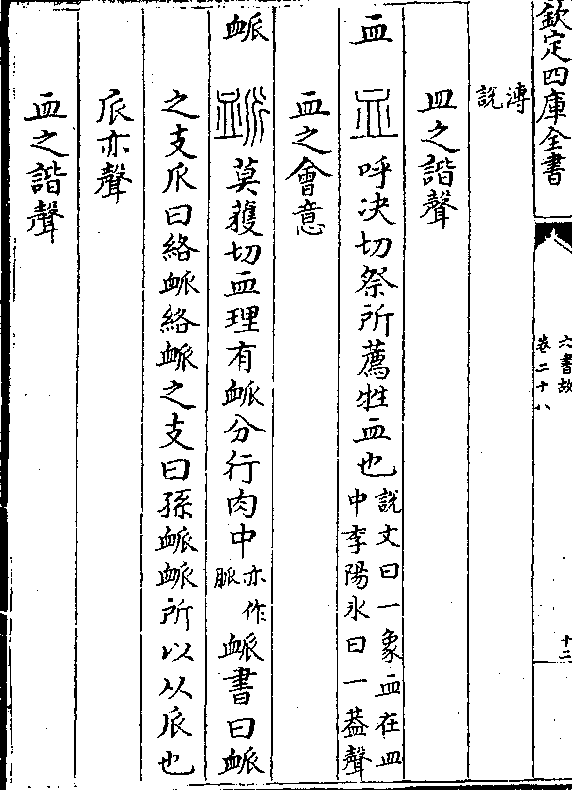 欽定四庫全書
六書故
卷二十八
十二
溥
説
皿之諧聲
血 呼决切祭所薦牲血也説文曰一象血在皿中李陽氷曰一葢聲
血之會意
衇 莫獲切血理有衇分行肉中亦作脈衇書曰衇
之支𠂢曰絡衇絡衇之支曰孫衇衇所以从𠂢也
𠂢亦聲
血之諧聲